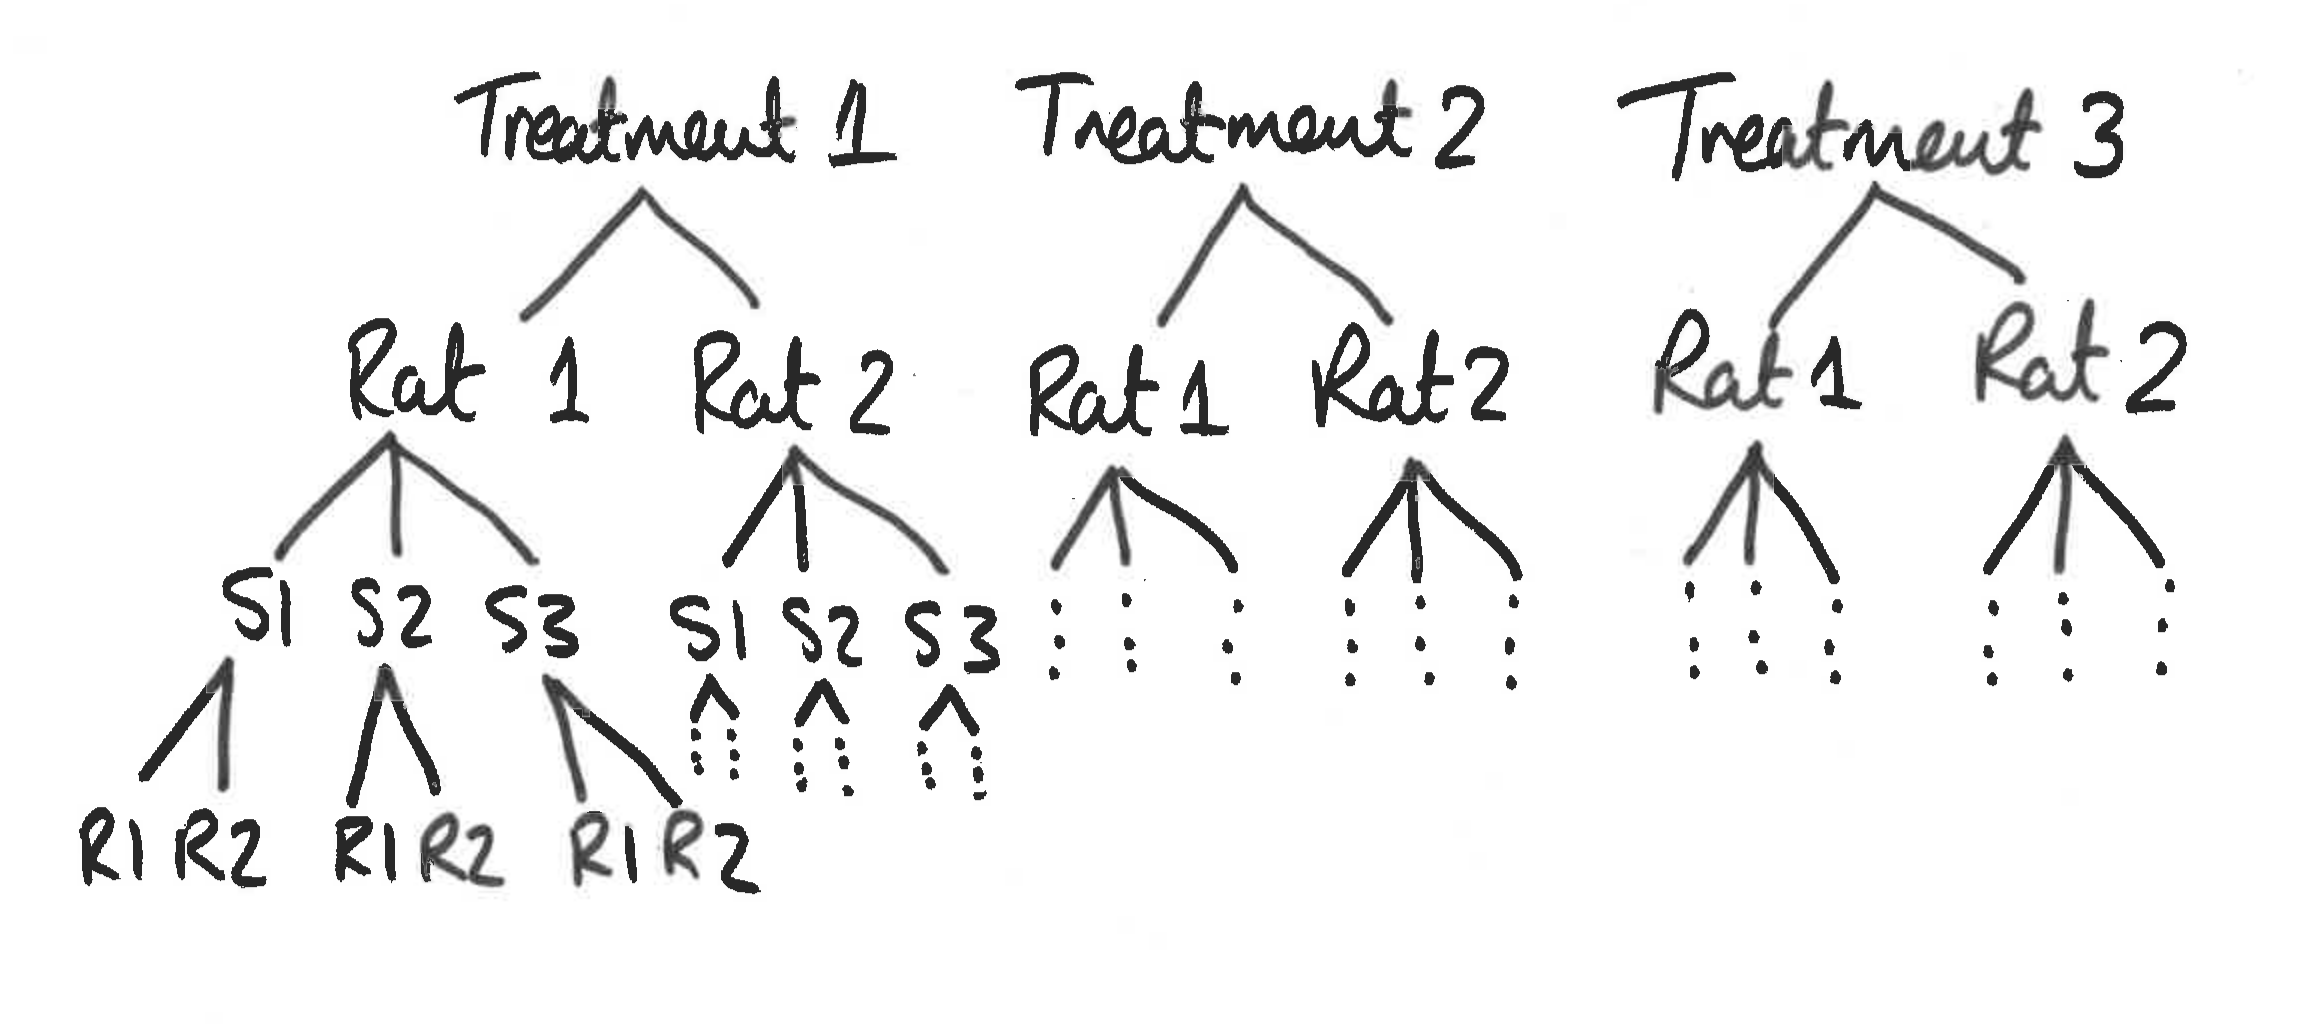 Treatment 1 Treatment 2 Treatment 3
Rat 1 Rat 2 Rat 1 Rat 2 Rat 1 Rat 2
S1 S2 S3 S1 S2 S3
R1 R2 R1 R2 R1 R2